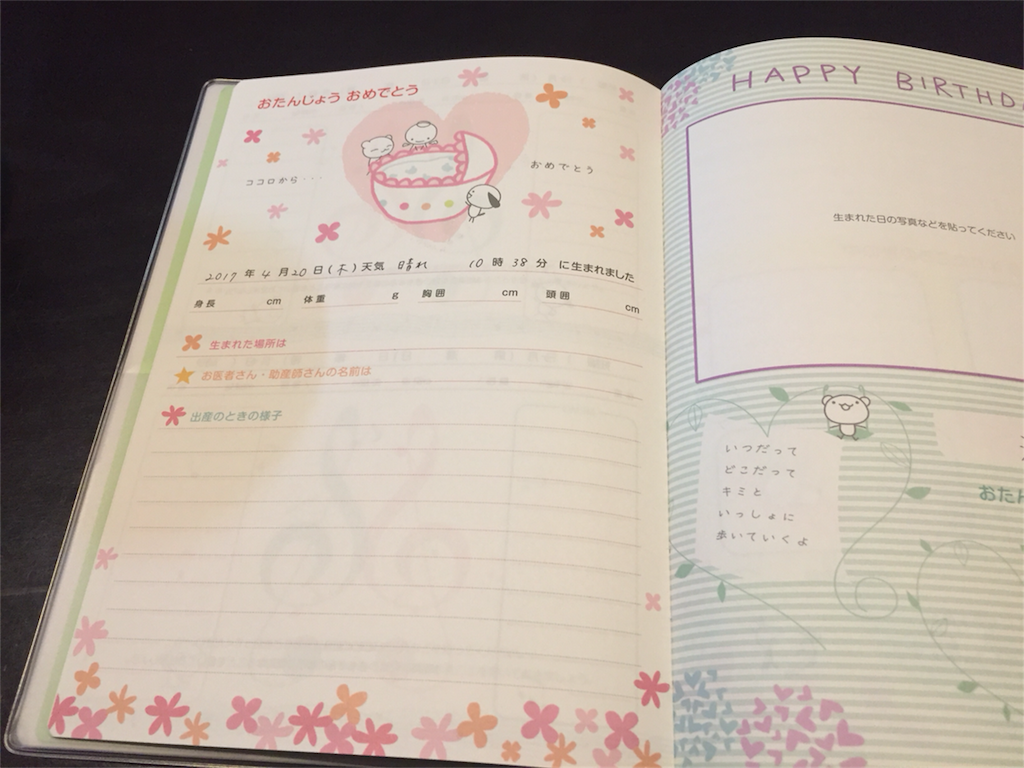 おたんじょう おめでとう
ココロから・・・
おめでとう
2017年4月20日(木)天気 晴れ 10時38分 に生まれました
身長 cm 体重 g 胸囲 cm 頭囲 cm
生まれた場所は
お医者さん・助産師さんの名前は
出産のときの様子
HAPPY BIRTHDA
生まれた日の写真などを貼ってください
いつだって
どこだって
キミと
いっしょに
歩いていくよ
おた